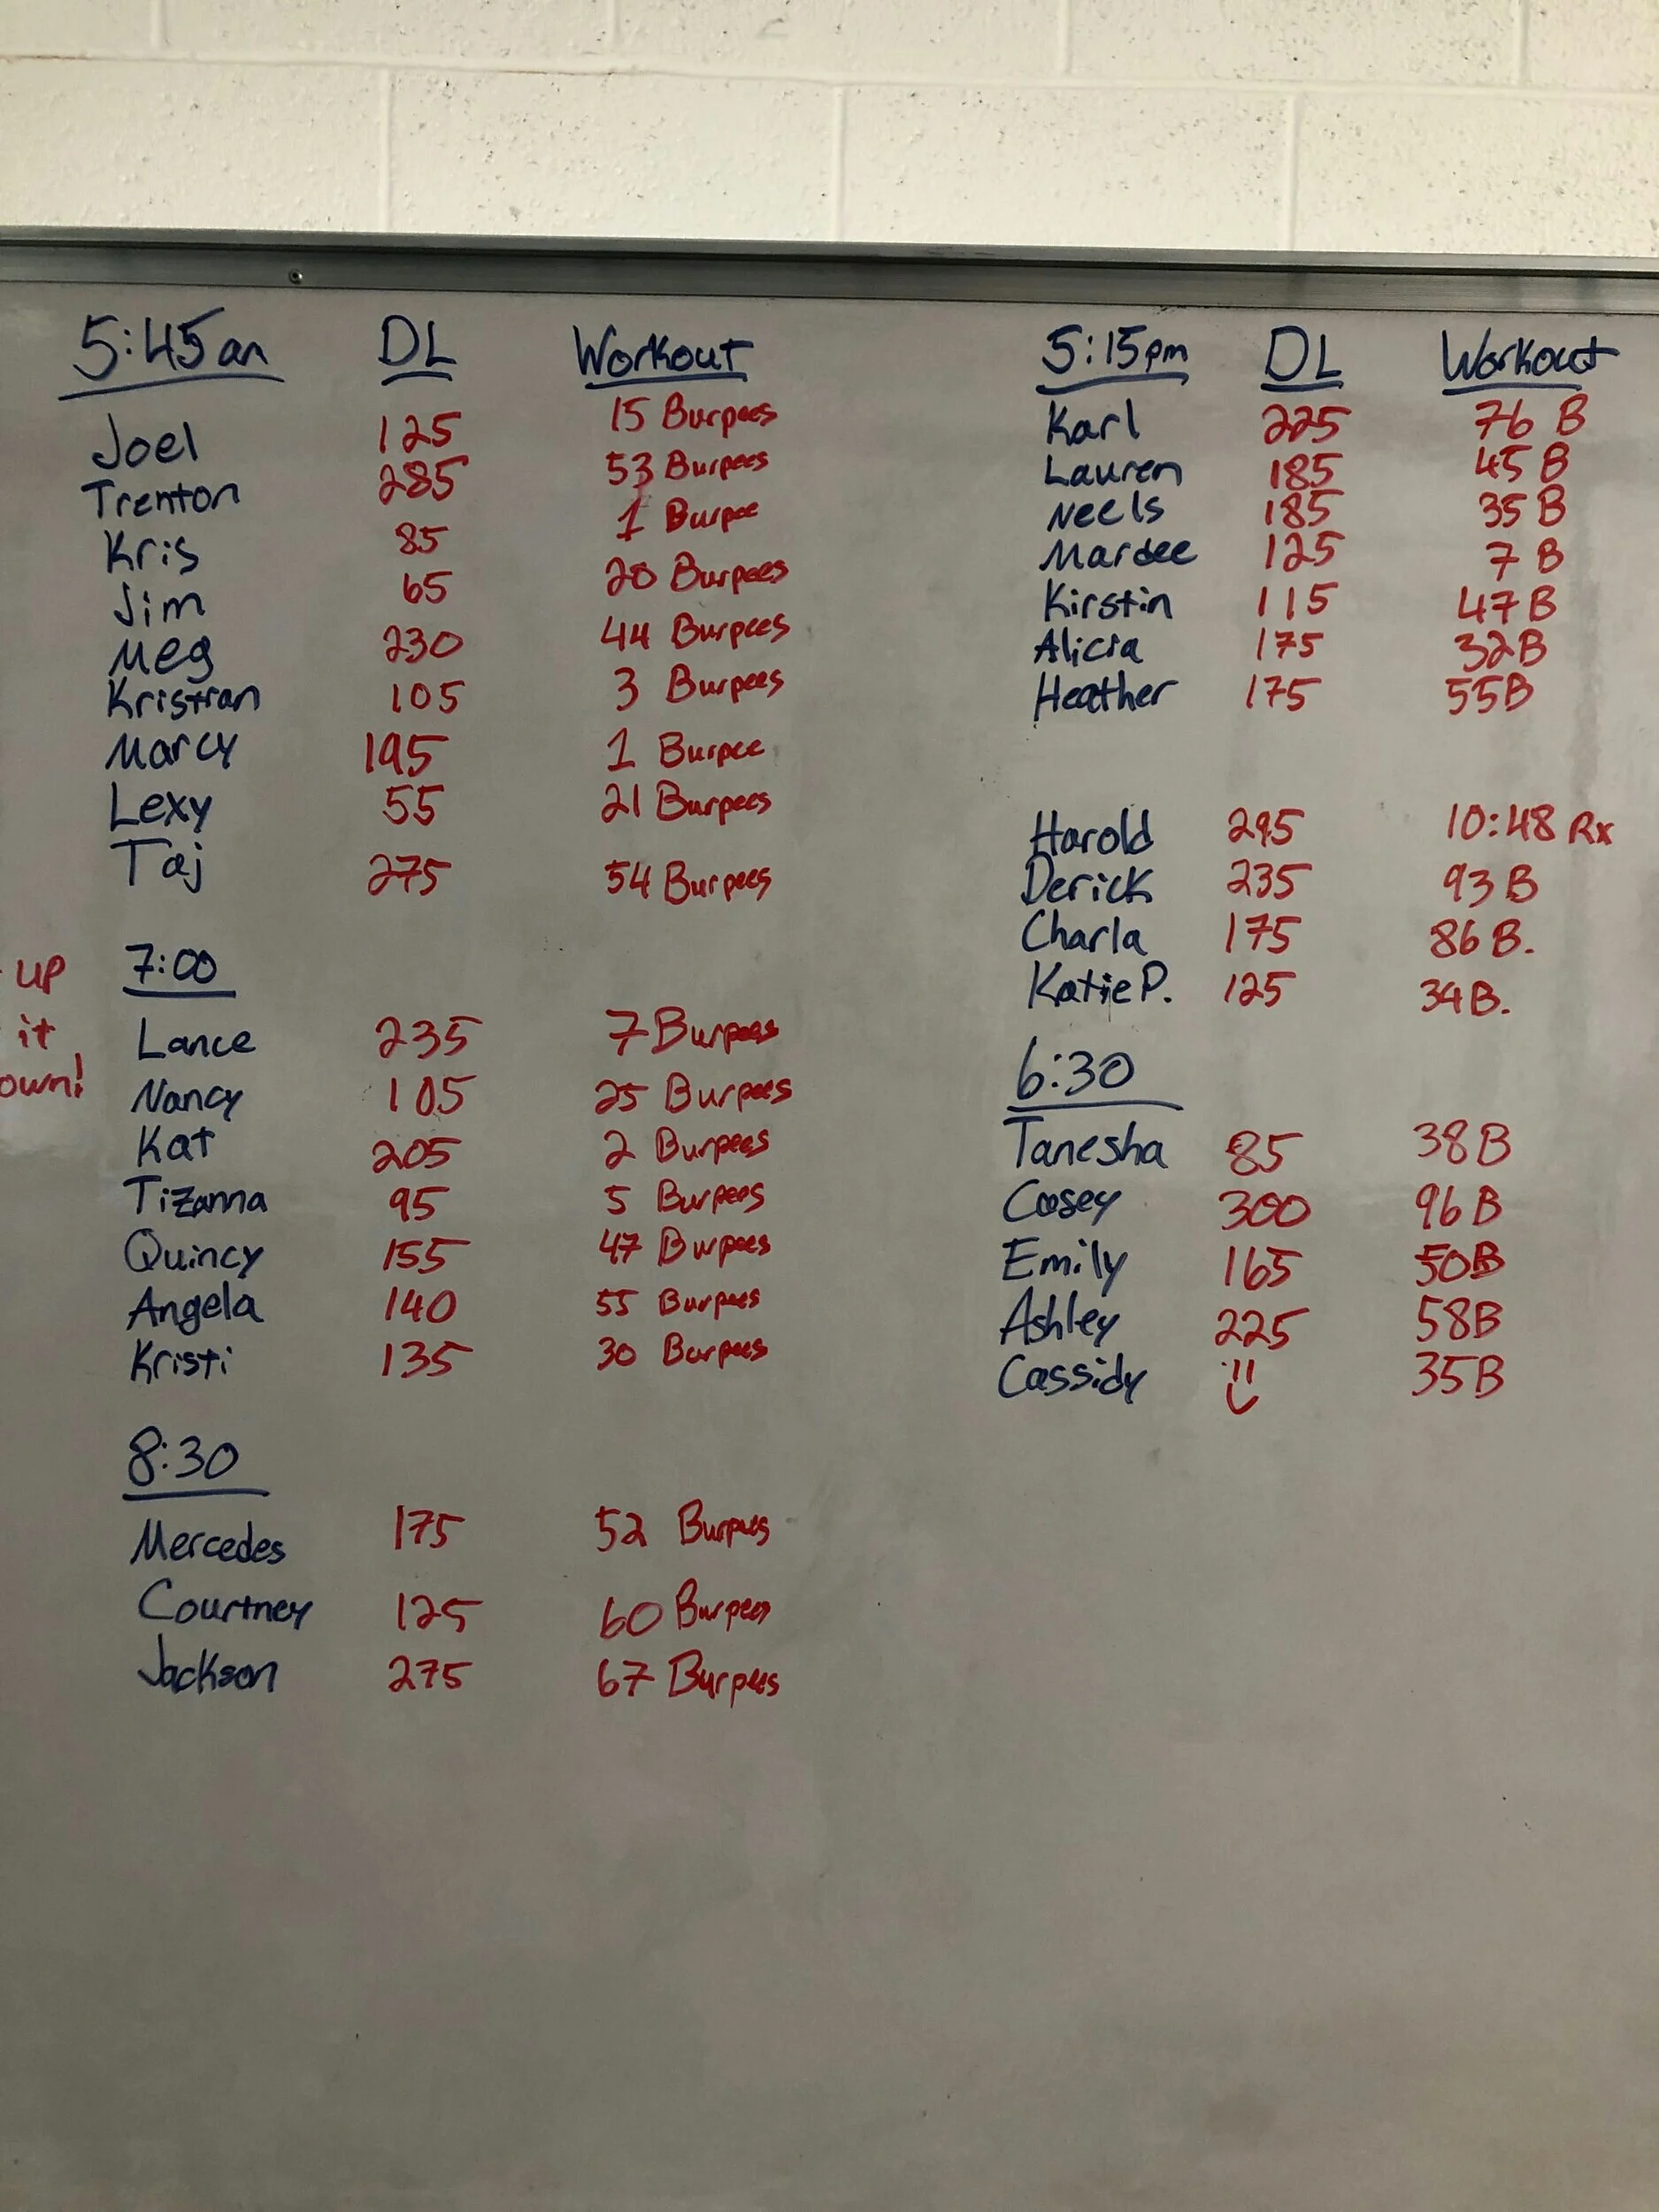 5:45am DL Workout
Joel 125 15 Burpees
Trenton 285 53 Burpees
Kris 85 1 Burpee
Jim 65 20 Burpees
Meg 230 44 Burpees
Kristian 105 3 Burpees
Marcy 195 1 Burpee
Lexy 55 21 Burpees
Taj 275 54 Burpees
up
it
own!
7:00
Lance 235 7 Burpees
Nancy 105 25 Burpees
Kat 205 2 Burpees
Tizanna 95 5 Burpees
Quincy 155 47 Burpees
Angela 140 55 Burpees
Kristi 135 30 Burpees
8:30
Mercedes 175 52 Burpees
Courtney 125 60 Burpees
Jackson 275 67 Burpees
5:15pm DL Workout
Karl 225 76 B
Lauren 185 45 B
Neels 185 35 B
Mardee 125 7 B
Kirstin 115 47 B
Alicia 175 32B
Heather 175 55B
Harold 295 10:48 Rx
Derick 235 93 B
Charla 175 86 B.
Katie P. 125 34 B.
6:30
Tanesha 85 38B
Casey 300 96 B
Emily 165 50B
Ashley 225 58B
Cassidy 35B